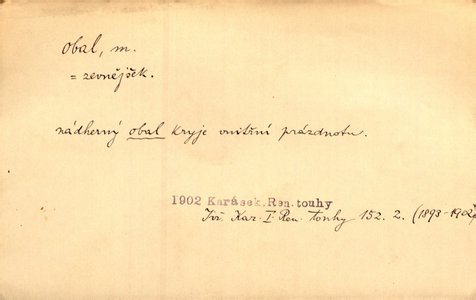 obal, m.
= zevnějšek.
nádherný obal kryje vnitřní prázdnotu.
1902 Karásek.Ren.touhy
Jiř. Kar. I. Ren. touhy 152. 2. (1893-1902